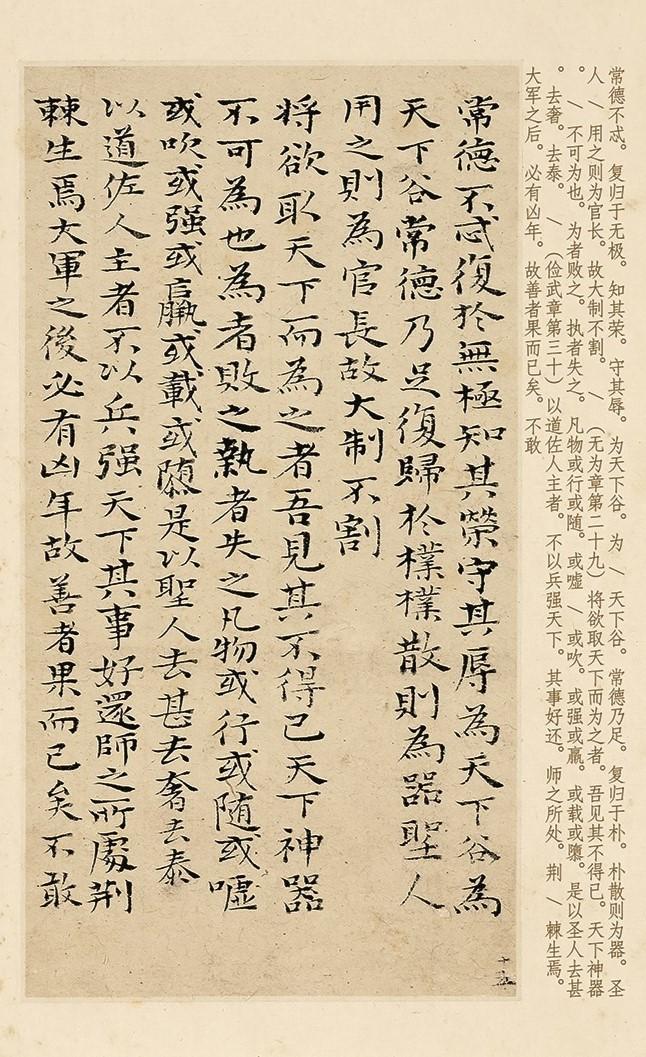 常德不忒。复归于无极。知其荣。守其辱。为天下谷。为 / 天下谷。常德乃足。复归于朴。朴散则为器。圣
人 / 用之则为官长。故大制不割。 / （无为章第二十九）将欲取天下而为之者。吾见其不得已。天下神器
。 / 不可为也。为者败之。执者失之。凡物或行或随。或嘘 / 或吹。或强或羸。或载或隳。是以圣人去甚
。去奢。去泰。 / （俭武章第三十）以道佐人主者。不以兵强天下。其事好还。师之所处。荆 / 棘生焉。
大军之后。必有凶年。故善者果而已矣。不敢
常德不忒復於無極知其榮守其辱為天下谷為
天下谷常德乃足復歸於樸樸散則為器聖人
用之則為官長故大制不割
将欲取天下而為之者吾見其不得已天下神器
不可為也為者敗之執者失之凡物或行或随或噓
或吹或强或羸或載或隳是以聖人去甚去奢去泰
以道佐人主者不以兵强天下其事好還師之所處荆
棘生焉大軍之後必有凶年故善者果而已矣不敢
十五